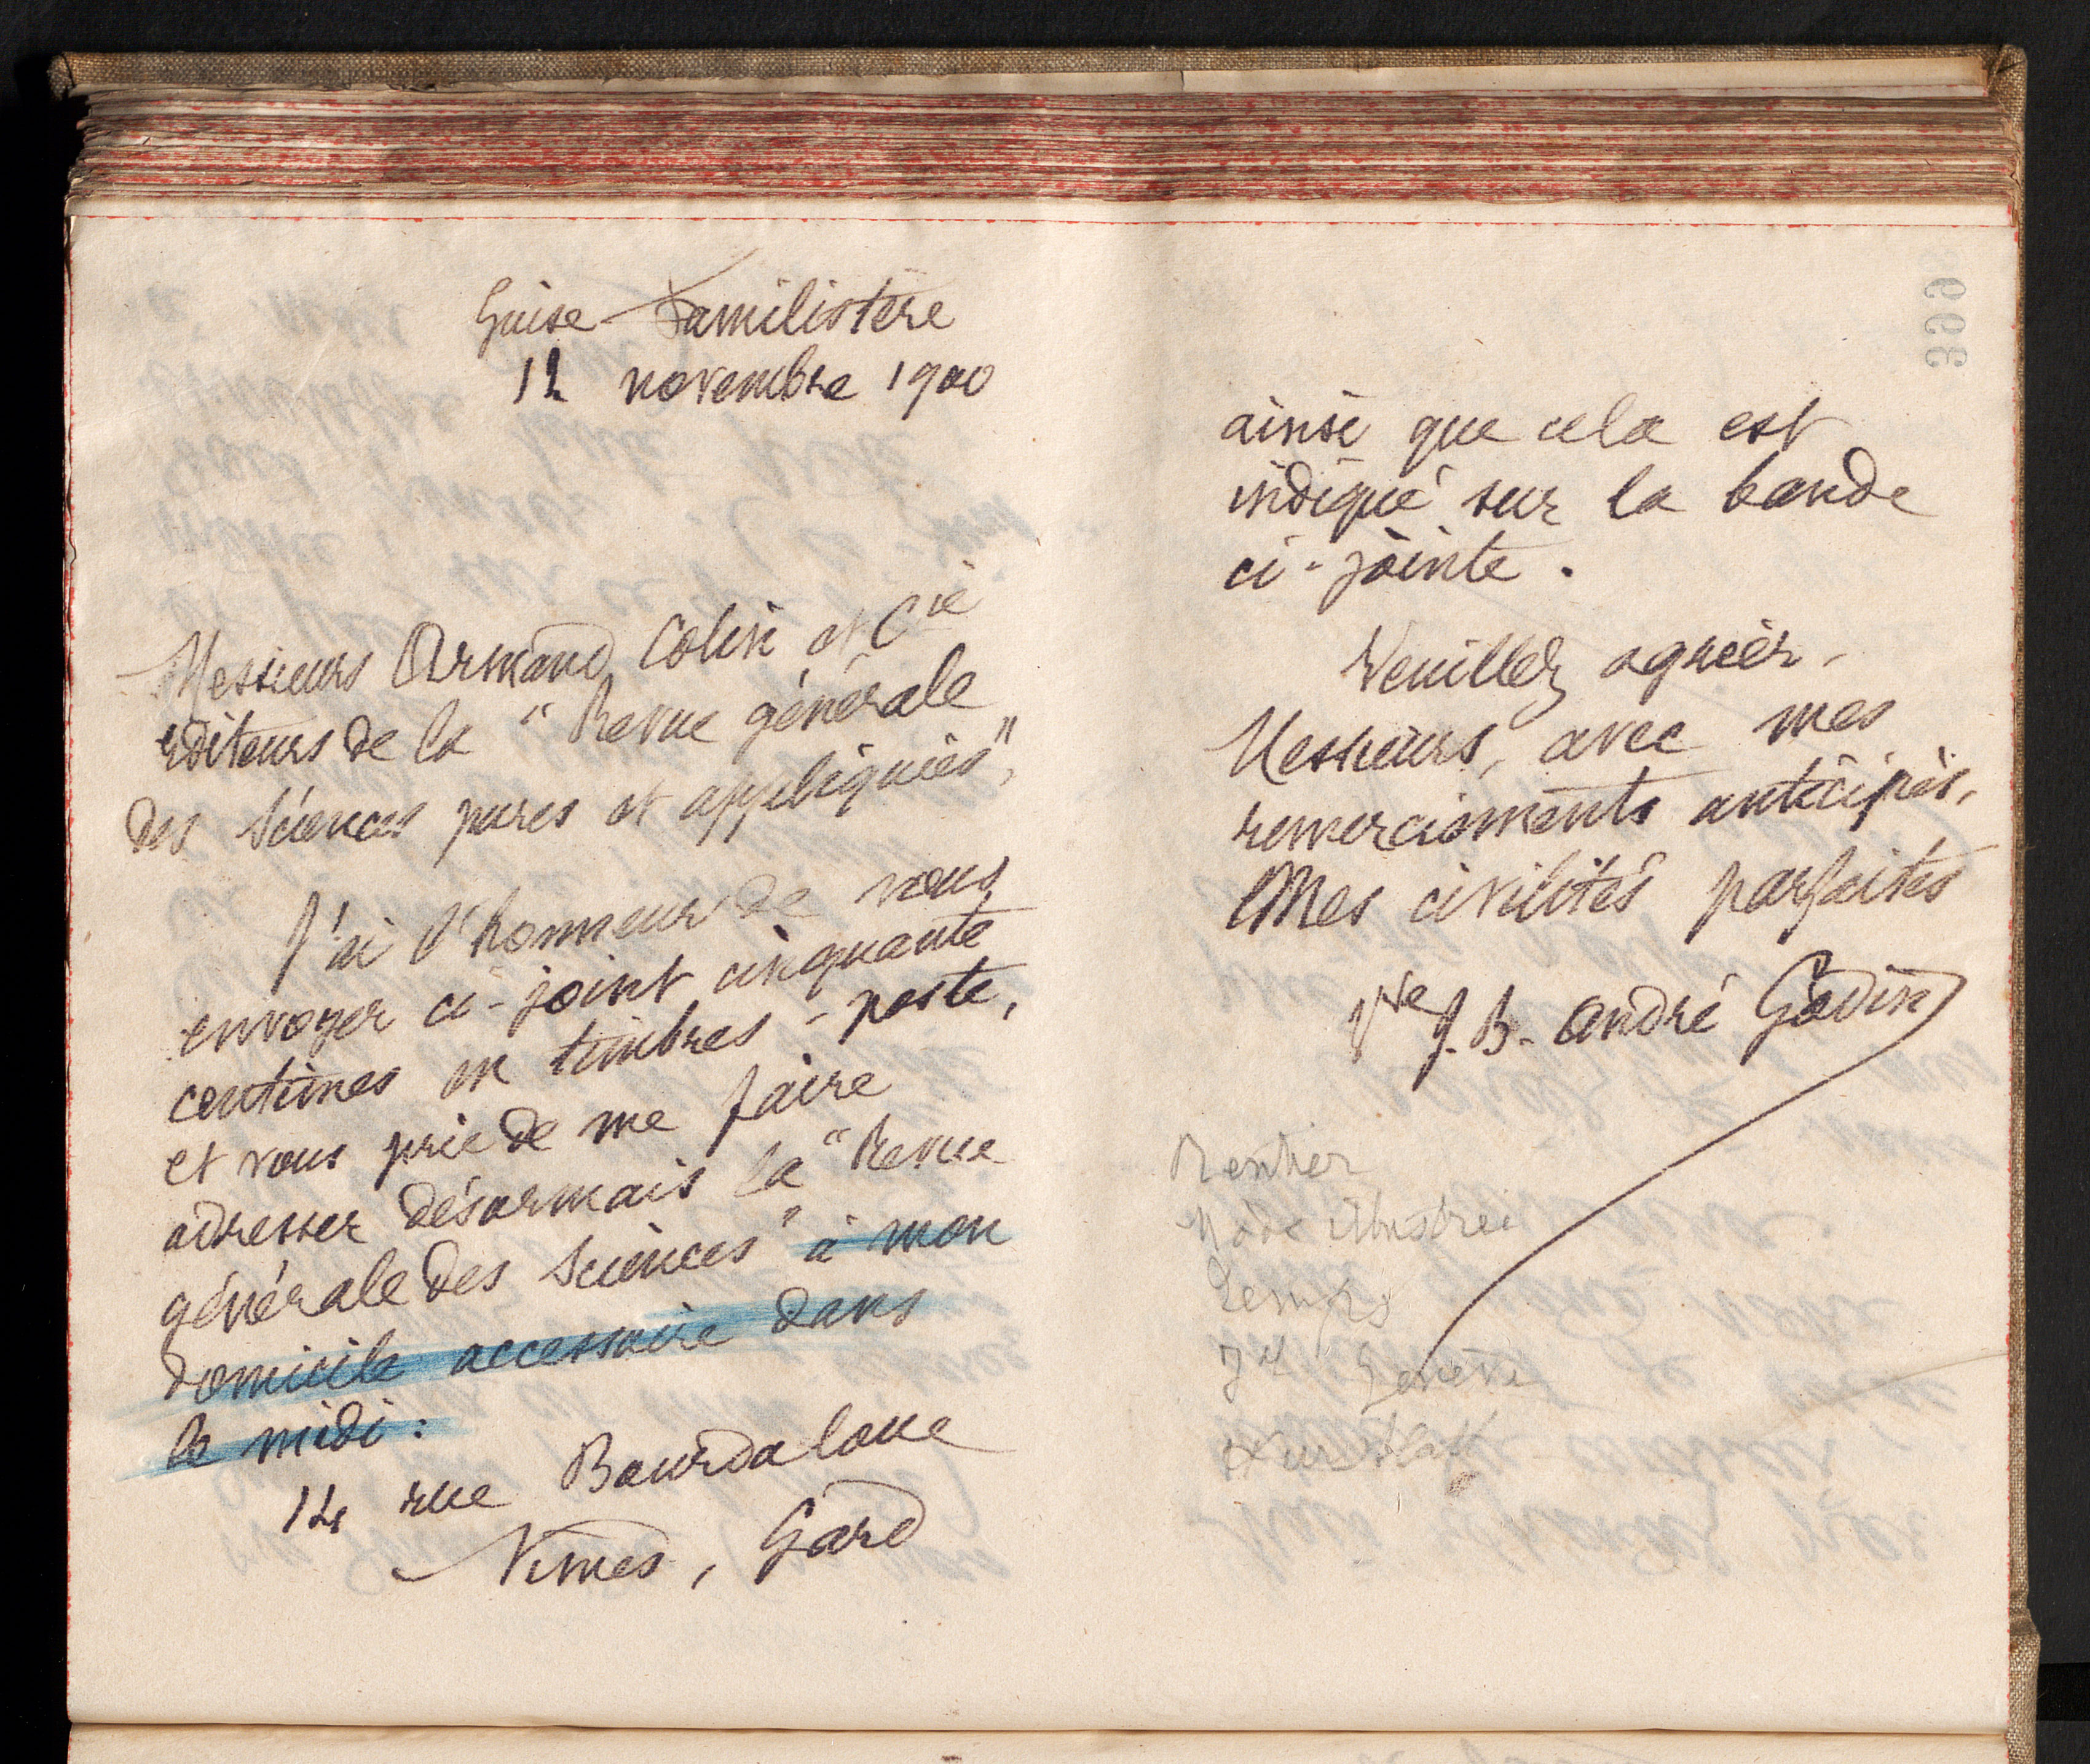 Guise-Familistère
12 novembre 1900
Messieurs Armand Colin et Cie
éditeurs de la "Revue générale
des Sciences pures et appliquées",
J'ai l'honneur de vous
envoyer ci-joint cinquante
centimes en timbres-poste,
et vous prie de me faire
adresser désormais la "Revue
générale des Sciences" à mon
domicile accessoire dans
le midi :
14 rue Bourdaloue
Nîmes, Gard
399
ainsi que cela est
indiqué sur la bande
ci-jointe.
Veuillez agréer,
Messieurs, avec mes
remerciements anticipés,
Mes civilités parfaites
Vve J. B. André Godin
Rentier
Mode illustrée
Temps